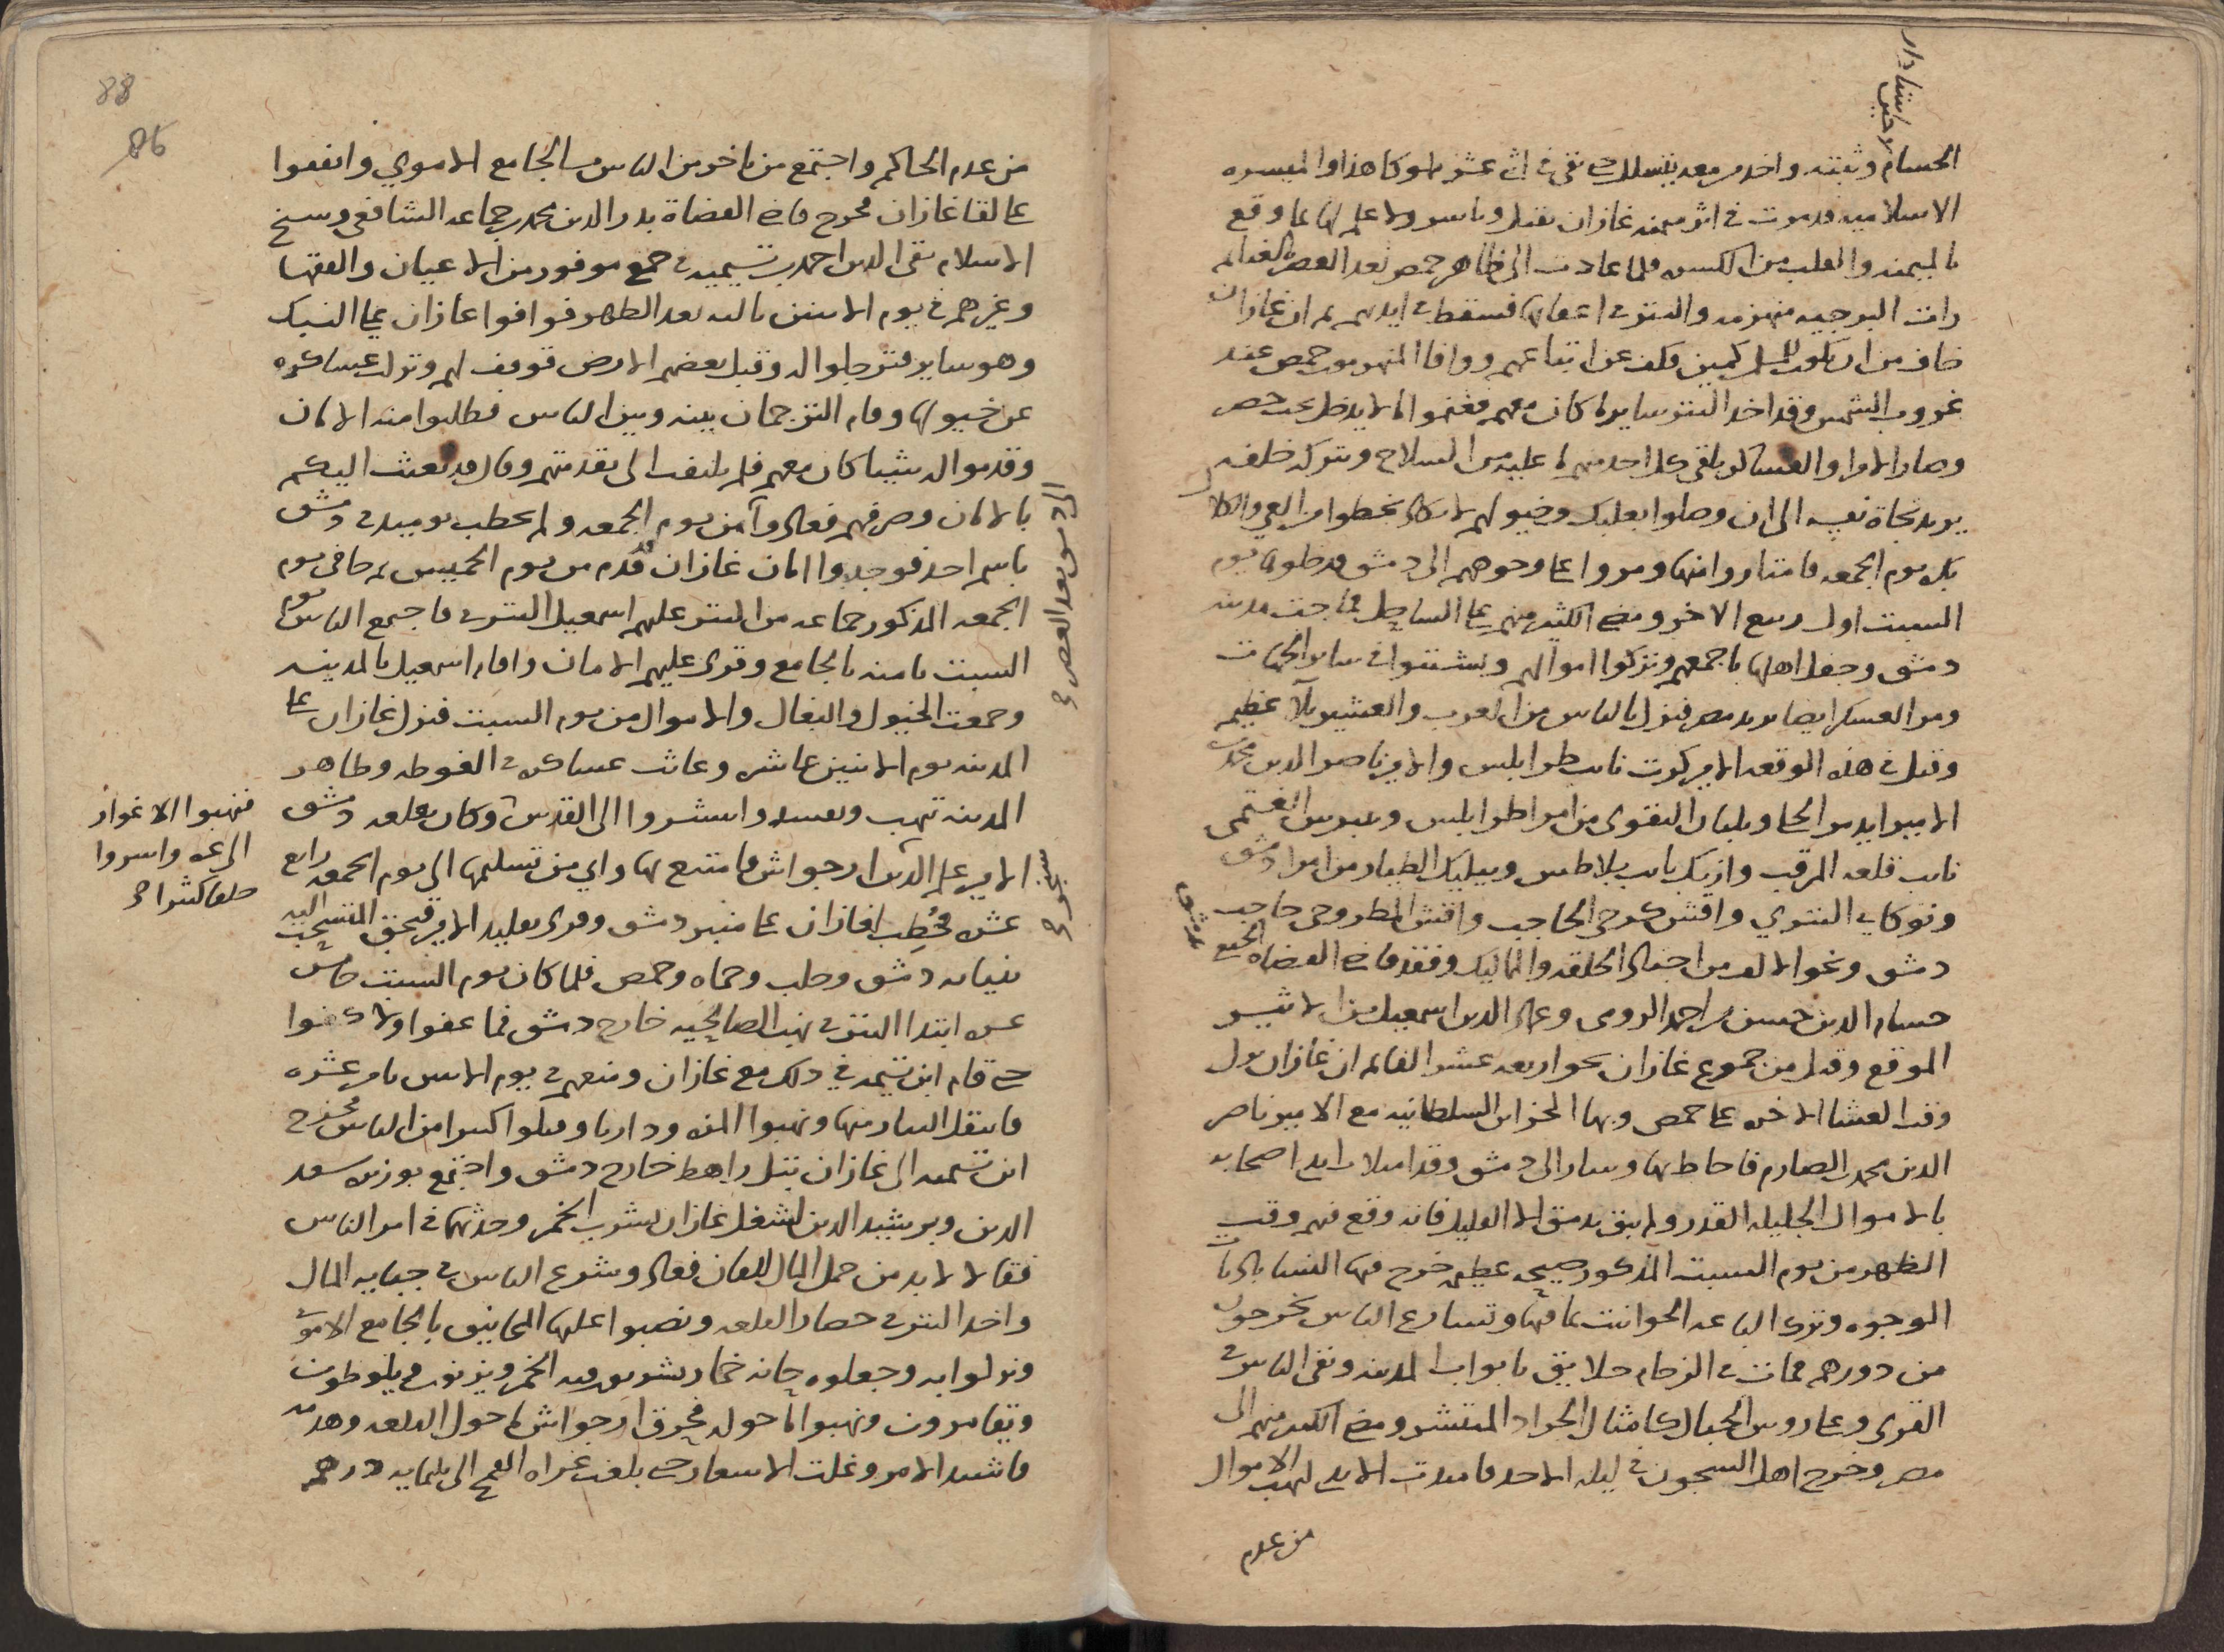 استادار
لاجين
الحسام وثبته واخذ من معه يتسلل حتى بقي في اثني عشر مملوكا هذا والميسره
الاسلاميه قد مرت في اثر ميمنه غازان تقتل وتاسر ولا علم لها بما وقع
بالميمنه والقلب من الكسره فلما عادت الى ظاهر حمص بعد العصر بالغنايم
رات البرجيه منهزمه والتتر في اعقابها فسقط في ايديهم ثم ان غازان
خاف من ان يكون للمسلمين كمين فكف عن اتباعهم ووافا المنهزمون حمص عند
غروب الشمس وقد اخذ التتر ساير ما كان معهم فغنموا ما لا يدخل تحت حصر
وصار الامرا والعساكر يلقي كل احد منهم ما عليه من السلاح ويتركه خلفه
يريد نجاة نفسه الى ان وصلوا بعلبك وخيولهم لا تكاد تخطوا من العي والكلال
بكره يوم الجمعه فامتاروا منها ومروا على وجوههم الى دمشق فدخلوها يوم
السبت اول ربيع الاخر ومضى الكثير منهم على الساحل فماجت مدينه
دمشق وجفل اهلها باجمعهم وتركوا اموالهم وتشتتوا في ساير الجهات
ومر العسكر ايضا يريد مصر فنزل بالناس من العرب والعشير بلآ عظيم
وقتل في هذه الوقعه الامير كرت نايب طرابلس والامير ناصر الدين محمد بن
الامير ايدمر الحلي وبلبان التقوى من امرا طرابلس وبيبرس الغتمى
نايب قلعه المرقب وازبك نايب بلاطنس وبيليك الطيار من امرا دمشق
ونوكاي التتري واقش كرجي الحاجب واقش المطروحي حاجب
دمشق ونحو الالف من اجناد الحلقه والمماليك وفقد قاضي القضاه الحنفي
بدمشق
حسام الدين حسن بن احمد الرومى وعماد الدين اسمعيل بن الاثير
الموقع وقتل من جموع غازان نحو اربعه عشر الفا ثم ان غازان نزل
وقت العشا الاخره على حمص وبها الخزاين السلطانيه مع الامير ناصر
الدين محمد بن الصارم فاحاط بها وسار الى دمشق وقد امتلات ايدي اصحابه
بالاموال الجليله القدر ولم يبق بدمشق الا القليل فانه وقع فيهم وقت
الظهر من يوم السبت المذكور صيحه عظيمه خرج فيها النسا باديات
الوجوه وترك الباعه الحوانيت بما فيها وتسارع الناس يخرجون
من دورهم فمات في الزحام خلايق بابواب المدينه وبقي الناس في
القرى وعلى روس الجبال كامثال الجراد المنتشر ومضى الكثير منهم الى
مصر وخرج اهل السجون في ليله الاحد فامتدت الايدي لنهب الاموال
من عدم
88
86
من عدم الحاكم واجتمع من تاخر من الناس بالجامع الاموي واتفقوا
على لقا غازان فخرج قاضي القضاة بدر الدين محمد بن جماعه الشافعي وشيخ
الاسلام تقي الدين احمد بن تيميه في جمع موفور من الاعيان والفقها
وغيرهم في يوم الاثنين ثالثه بعد الظهر فوافوا غازان على النبك
وهو ساير فترجلوا له وقبل بعضهم الارض فوقف لهم ونزلت عساكره
عن خيولها وقام الترجمان بينه وبين الناس فطلبوا منه الامان
وقدموا له شيا كان معهم فلم يلتفت الى تقدمتهم وقال قد بعثت اليكم
بالامان وصرفهم فعادوا من يوم الجمعه ولم يخطب يوميذ في دمشق
الى دمشق بعد العصر صح
باسم احد فوجدوا امان غازان قدم من يوم الخميس ثم جا في يوم
الجمعه المذكور جماعه من التتر عليهم اسمعيل التتري فاجتمع الناس يوم
السبت ثامنه بالجامع وقرى عليهم الامان واقام اسمعيل بالمدينه
وجمعت الخيول والبغال والاموال من يوم السبت فنزل غازان على
المدينه يوم الاثنين عاشره وعاثت عساكره في الغوطه وظاهر
المدينه تنهب وتفسد وانتشروا الى القدس وكان بقلعه دمشق
فنهبوا الاغوار
الى غزه واسروا
خلقا كثيرا صح
الامير علم الدين ارجواش فامتنع بها وابي من تسليمها الى يوم الجمعه رابع
سنجر صح
عشره فخُطِب لغازان على منبر دمشق وقرى تقليد الامير قبجق المنسحب اليه
بنيابه دمشق وحلب وحماه وحمص فلما كان يوم السبت خامس
عشره ابتدا التتر في نهب الصالحيه خارج دمشق فما عفوا ولا كفوا
حتى قام ابن تيميه في ذلك مع غازان ومنعهم في يوم الاثنين ثامن عشره
فانتقل التتار منها ونهبوا المزه وداريا وقتلوا كثيرا من الناس فخرج
ابن تيميه الى غازان بتل راهط خارج دمشق واجتمع بوزيره سعد
الدين وبرشيد الدين لشغل غازان بشرب الخمر وحدثهما في امر الناس
فقالا لا بد من حمل المال للغازان فعاد وشرع الناس في جبايه المال
واخذ التتر في حصار القلعه ونصبوا عليها المجانيق بالجامع الاموي
ونزلوا به وجعلوه حانه خمار يشربون فيه الخمر ويزنون ويلوطون
ويقامرون ونهبوا ما حوله فحرق ارجواش ما حول القلعه وهدمه
فاشتد الامر وغلت الاسعار حتى بلغت غراره القمح الى ثلثمايه درهم